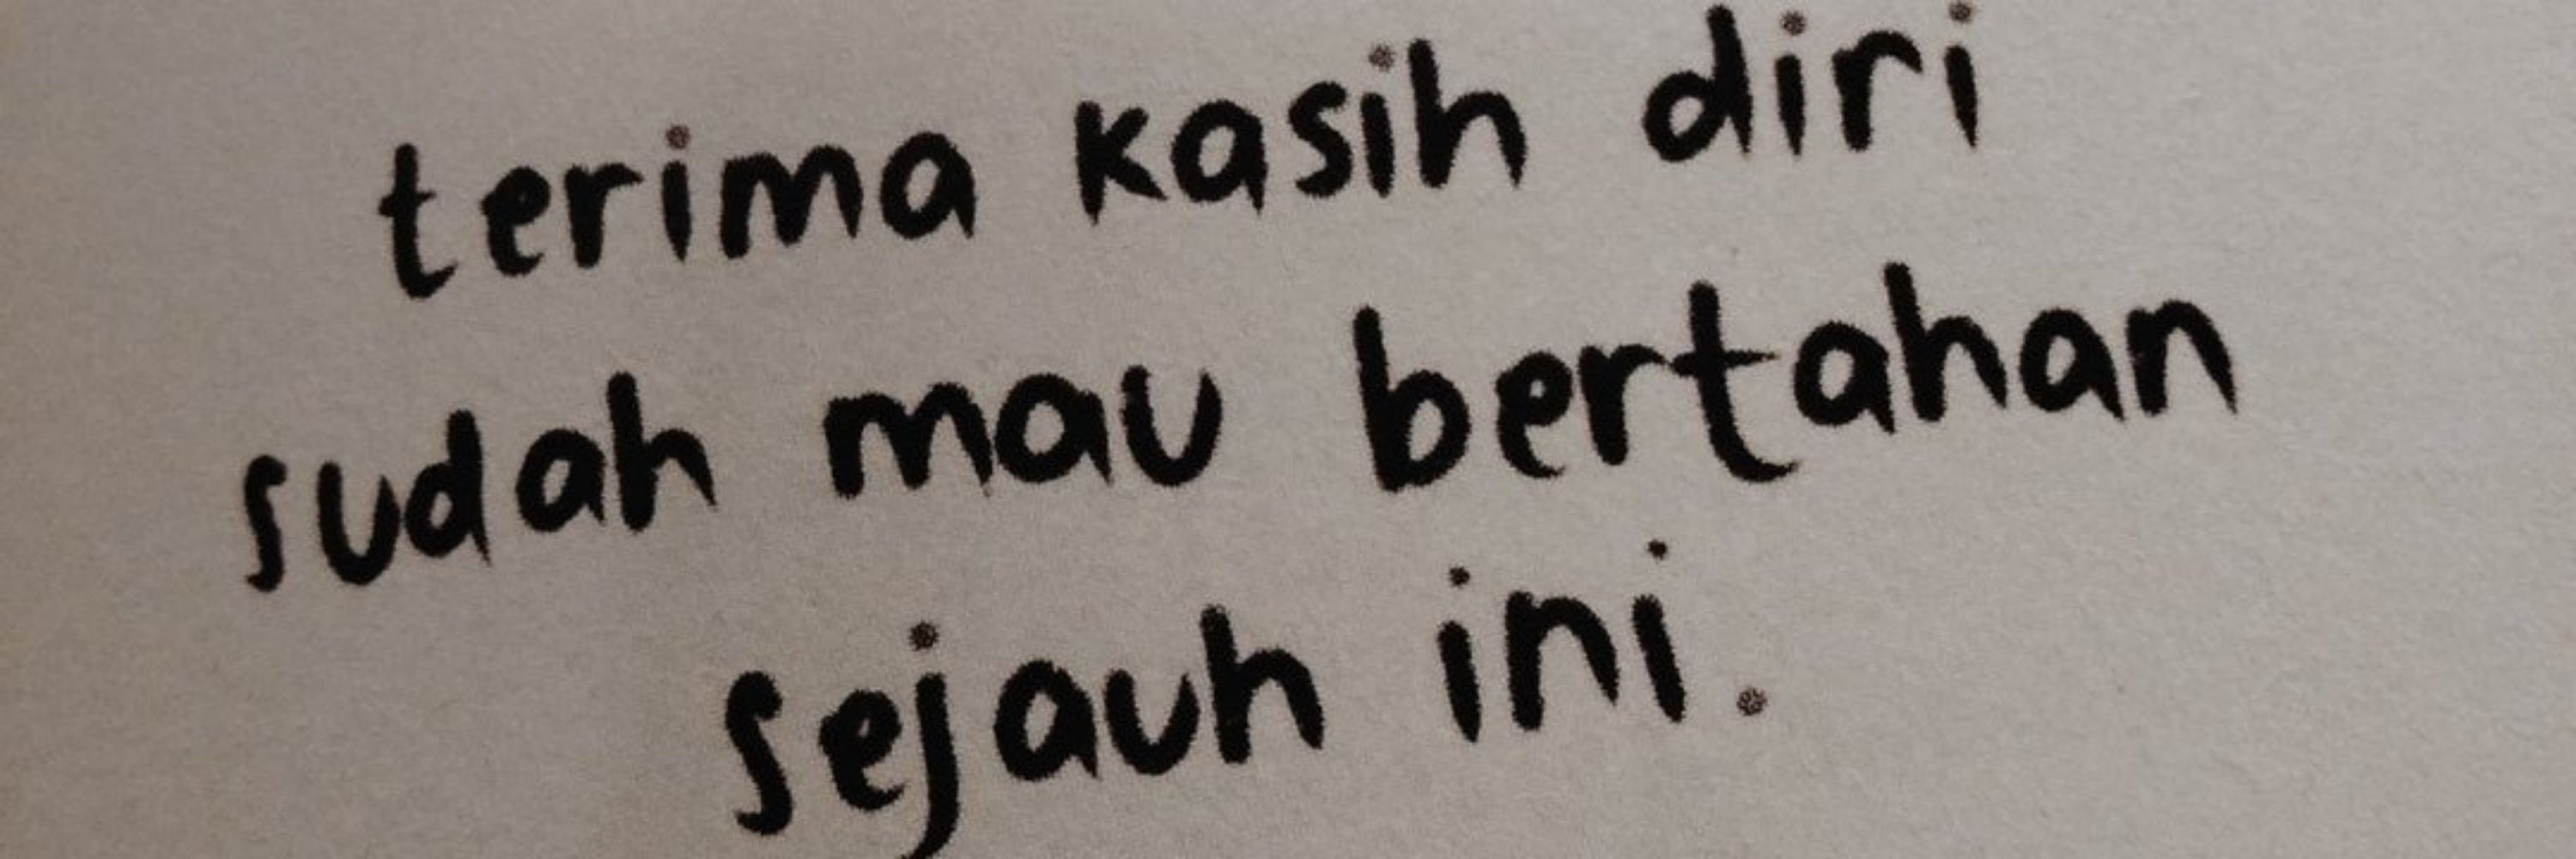 terima kasih diri
sudah mau bertahan
sejauh ini.